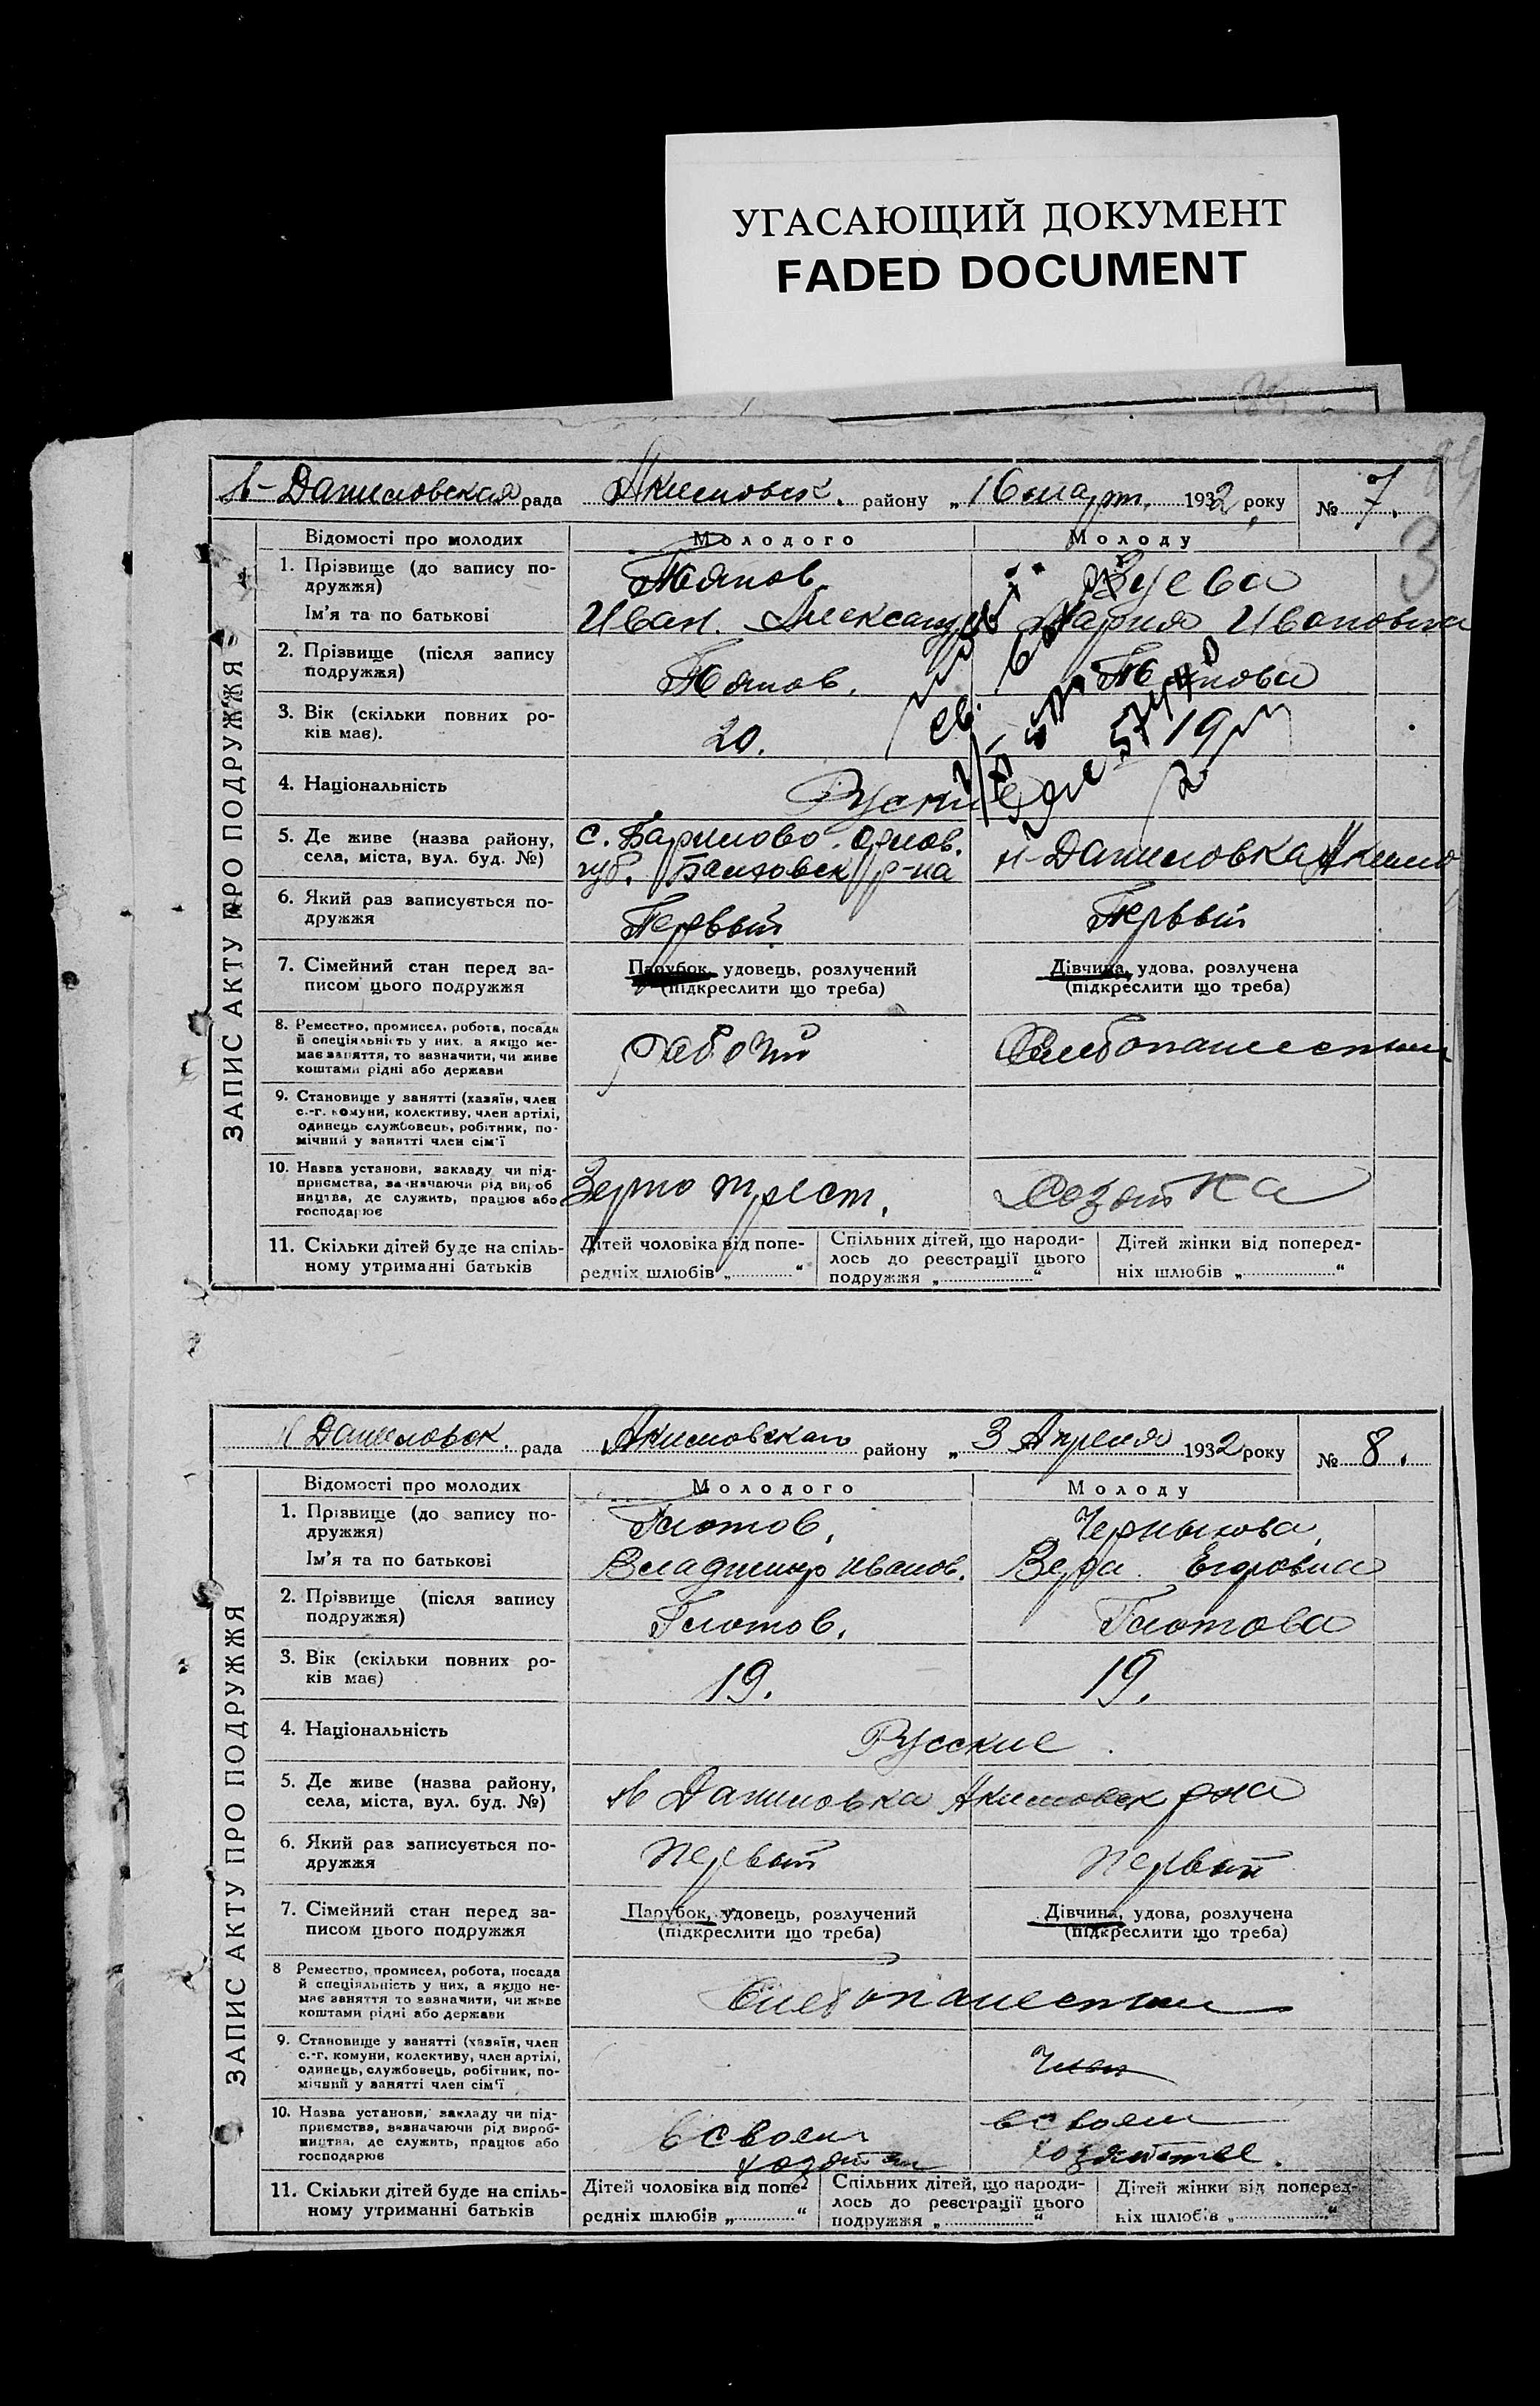 УГАСАЮЩИЙ ДОКУМЕНТ
FADED DOCUMENT
ЗАПИС АКТУ ПРО ПОДРУЖЖЯ
Даниловская рада Акимовск. району „16 март. 1932 року № 7.
Відомості про молодих Молодого Молоду
1. Прізвище (до запису по-
дружжя)
Ім'я та по батькові Иван. Александр Мария Ивановна
2. Прізвище (після запису
подружжя)
3. Вік (скільки повних ро- 20. 19
ків має).
4. Національність Руские
5. Де живе (назва району, с.
села, міста, вул. буд. №) губ. р-на Даниловка Акимо
6. Який раз записується по- Первый Первый
дружжя
7. Сімейний стан перед за- Парубок, удовець, розлучений Дівчина, удова, розлучена
писом цього подружжя (підкреслити що треба) (підкреслити що треба)
8. Ремество, промисел, робота, посада
й спеціяльність у них, а якщо не-
має заняття, то зазначити, чи живе
коштами рідні або держави
9. Становище у занятті (хазяїн, член
с.-г. комуни, колективу, член артілі,
одинець службовець, робітник, по-
мічний у занятті член сім'ї
10. Назва установи, закладу чи під-
приємства, зазначаючи рід вироб
ництва, де служить, працює або Зерно трест.
господарює
11. Скільки дітей буде на спіль- Дітей чоловіка від попе- Спільних дітей, що народи- Дітей жінки від поперед-
ному утриманні батьків редніх шлюбів „ “ лось до реєстрації цього ніх шлюбів „ “
подружжя „ “
ЗАПИС АКТУ ПРО ПОДРУЖЖЯ
Даниловск. рада Акимовского району „ 3 Апреля 1932 року № 8.
Відомості про молодих Молодого Молоду
1. Прізвище (до запису по- Глотов,
дружжя)
Ім'я та по батькові Владимир Иванов. Вера Егоровна
2. Прізвище (після запису
подружжя) Глотов. Глотова
3. Вік (скільки повних ро-
ків має) 19. 19.
4. Національність Русские
5. Де живе (назва району,
села, міста, вул. буд. №) Даниловка Акимовск рна
6. Який раз записується по- Первый Первый
дружжя
7. Сімейний стан перед за- Парубок, удовець, розлучений Дівчина, удова, розлучена
писом цього подружжя (підкреслити що треба) (підкреслити що треба)
8 Ремество, промисел, робота, посада
й спеціяльність у них, а якщо не-
має заняття то зазначити, чи живе
коштами рідні або держави
9. Становище у занятті (хазяїн, член
с.-г. комуни, колективу, член артілі,
одинець, службовець, робітник, по-
мічний у занятті член сім'ї
10. Назва установи, закладу чи під-
приємства, зазначаючи рід вироб- в своем в своем
ництва, де служить, працює або хозяйстве.
господарює
11. Скільки дітей буде на спіль- Дітей чоловіка від попе- Спільних дітей, що народи- Дітей жінки від поперед-
ному утриманні батьків редніх шлюбів „ “ лось до реєстрації цього ніх шлюбів „ “
подружжя „ “